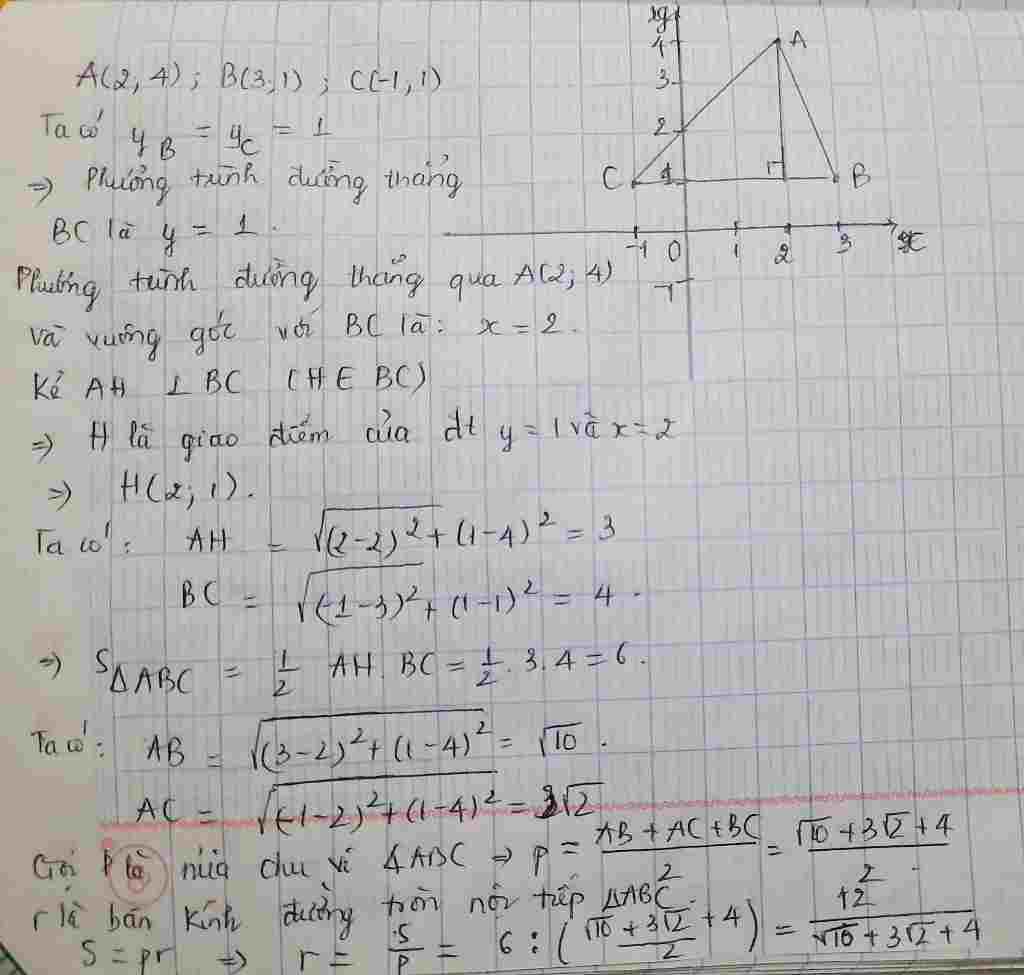 A(2, 4) ; B(3; 1) ; C(-1, 1)
Ta có y_B = y_C = 1
=> Phương trình đường thẳng
BC là y = 1.
Phương trình đường thẳng qua A(2; 4)
và vuông góc với BC là: x = 2.
Kẻ AH ⊥ BC (H ∈ BC)
=> H là giao điểm của đt y = 1 và x = 2
=> H(2; 1).
Ta có: AH = √((2-2)² + (1-4)²) = 3
BC = √((-1-3)² + (1-1)²) = 4.
=> S_ΔABC = 1/2 AH. BC = 1/2 . 3. 4 = 6.
Ta có: AB = √((3-2)² + (1-4)²) = √10.
AC = √((-1-2)² + (1-4)²) = 3√2
Gọi P là nửa chu vi ΔABC => p = (AB + AC + BC)/2 = (√10 + 3√2 + 4)/2.
r là bán kính đường tròn nội tiếp ΔABC.
S = pr => r = S/p = 6 : ((√10 + 3√2 + 4)/2) = 12/(√10 + 3√2 + 4)
y
4 A
3
2
C 1 B
-1 0 1 2 3 x
-1